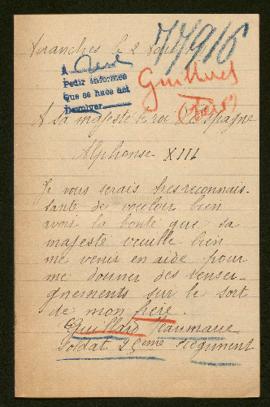 Avranches le 2
77916
A
Pedir informes
Que se hace así
Devolver
A sa majesté le roi d'Espagne
Alphonse XIII
Je vous serais très reconnais-
sante de vouloir bien
avoir la bonté que sa
majesté veuille bien
me venir en aide pour
me donner des rensei-
gnements sur le sort
de mon frère
Guillard Jeanmarie
Soldat 2 ème Régiment